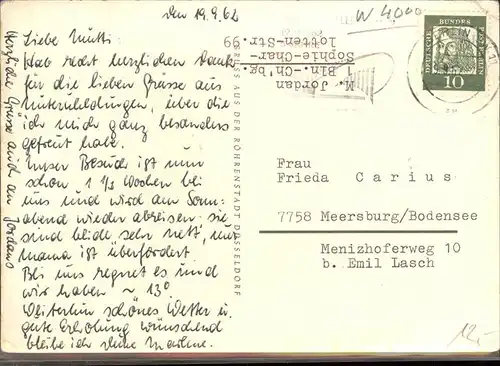 den 19.9.62
Liebe Mutti!
Hab recht herzlichen Dank
für die lieben Grüsse aus
Unteruhldingen, über die
ich mich ganz besonders
gefreut habe.
Unser Besuch ist nun
schon 1 1/3 Wochen bei
uns und wird am Sonn-
abend wieder abreisen. Sie
sind beide sehr nett, nur
Mama ist überfordert.
Bei uns regnet es und
wir haben ~ 13°
Weiterhin schönes Wetter u.
gute Erholung wünschend
bleibe ich Deine
Herzliche Grüsse auch an Jordans
GRUSS AUS DER RÖHRENSTADT DÜSSELDORF
M. Jordan
1 Bln.-Ch'bg.
Sophie-Char-
lotten-Str. 99
W 4,000
DEUTSCHE BUNDESPOST
BERLIN
10
Frau
Frieda Carius
7758 Meersburg/Bodensee
Menizhoferweg 10
b. Emil Lasch
12,-